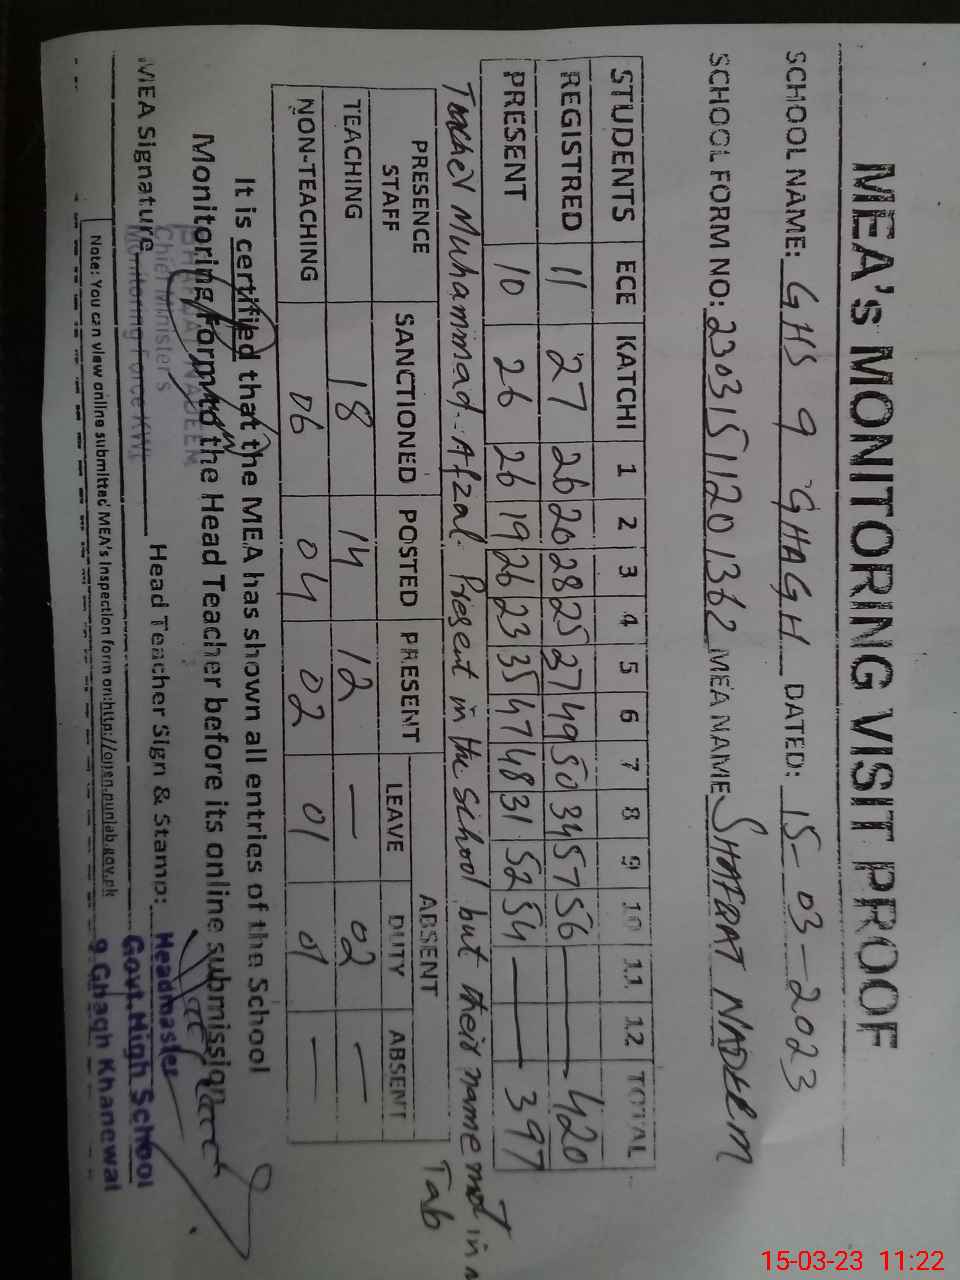 MEA's MONITORING VISIT PROOF
SCHOOL NAME: GHS 9 GHAGH DATED: 15-03-2023
SCHOOL FORM NO: 23031511201362 MEA NAME SHAFQAT NADEEM
STUDENTS ECE KATCHI 1 2 3 4 5 6 7 8 9 10 11 12 TOTAL
REGISTRED 11 27 26 20 28 25 27 49 50 34 57 56 — — 420
PRESENT 10 26 26 19 26 23 35 47 48 31 52 54 — — 397
Teacher Muhammad Afzal Present in the school but their name not in
Tab
PRESENCE STAFF SANCTIONED POSTED PRESENT ABSENT
LEAVE DUTY ABSENT
TEACHING 18 14 12 — 02 —
NON-TEACHING 06 04 02 01 01 —
It is certified that the MEA has shown all entries of the School
Monitoring Form to the Head Teacher before its online submission
MEA Signature Head Teacher Sign & Stamp:
NADEEM
Chief Minister's
Monitoring Force KWL
Headmaster
Govt. High School
9 Ghagh Khanewal
Note: You can view online submitted MEA's Inspection form on:http://open.punjab.gov.pk
15-03-23 11:22